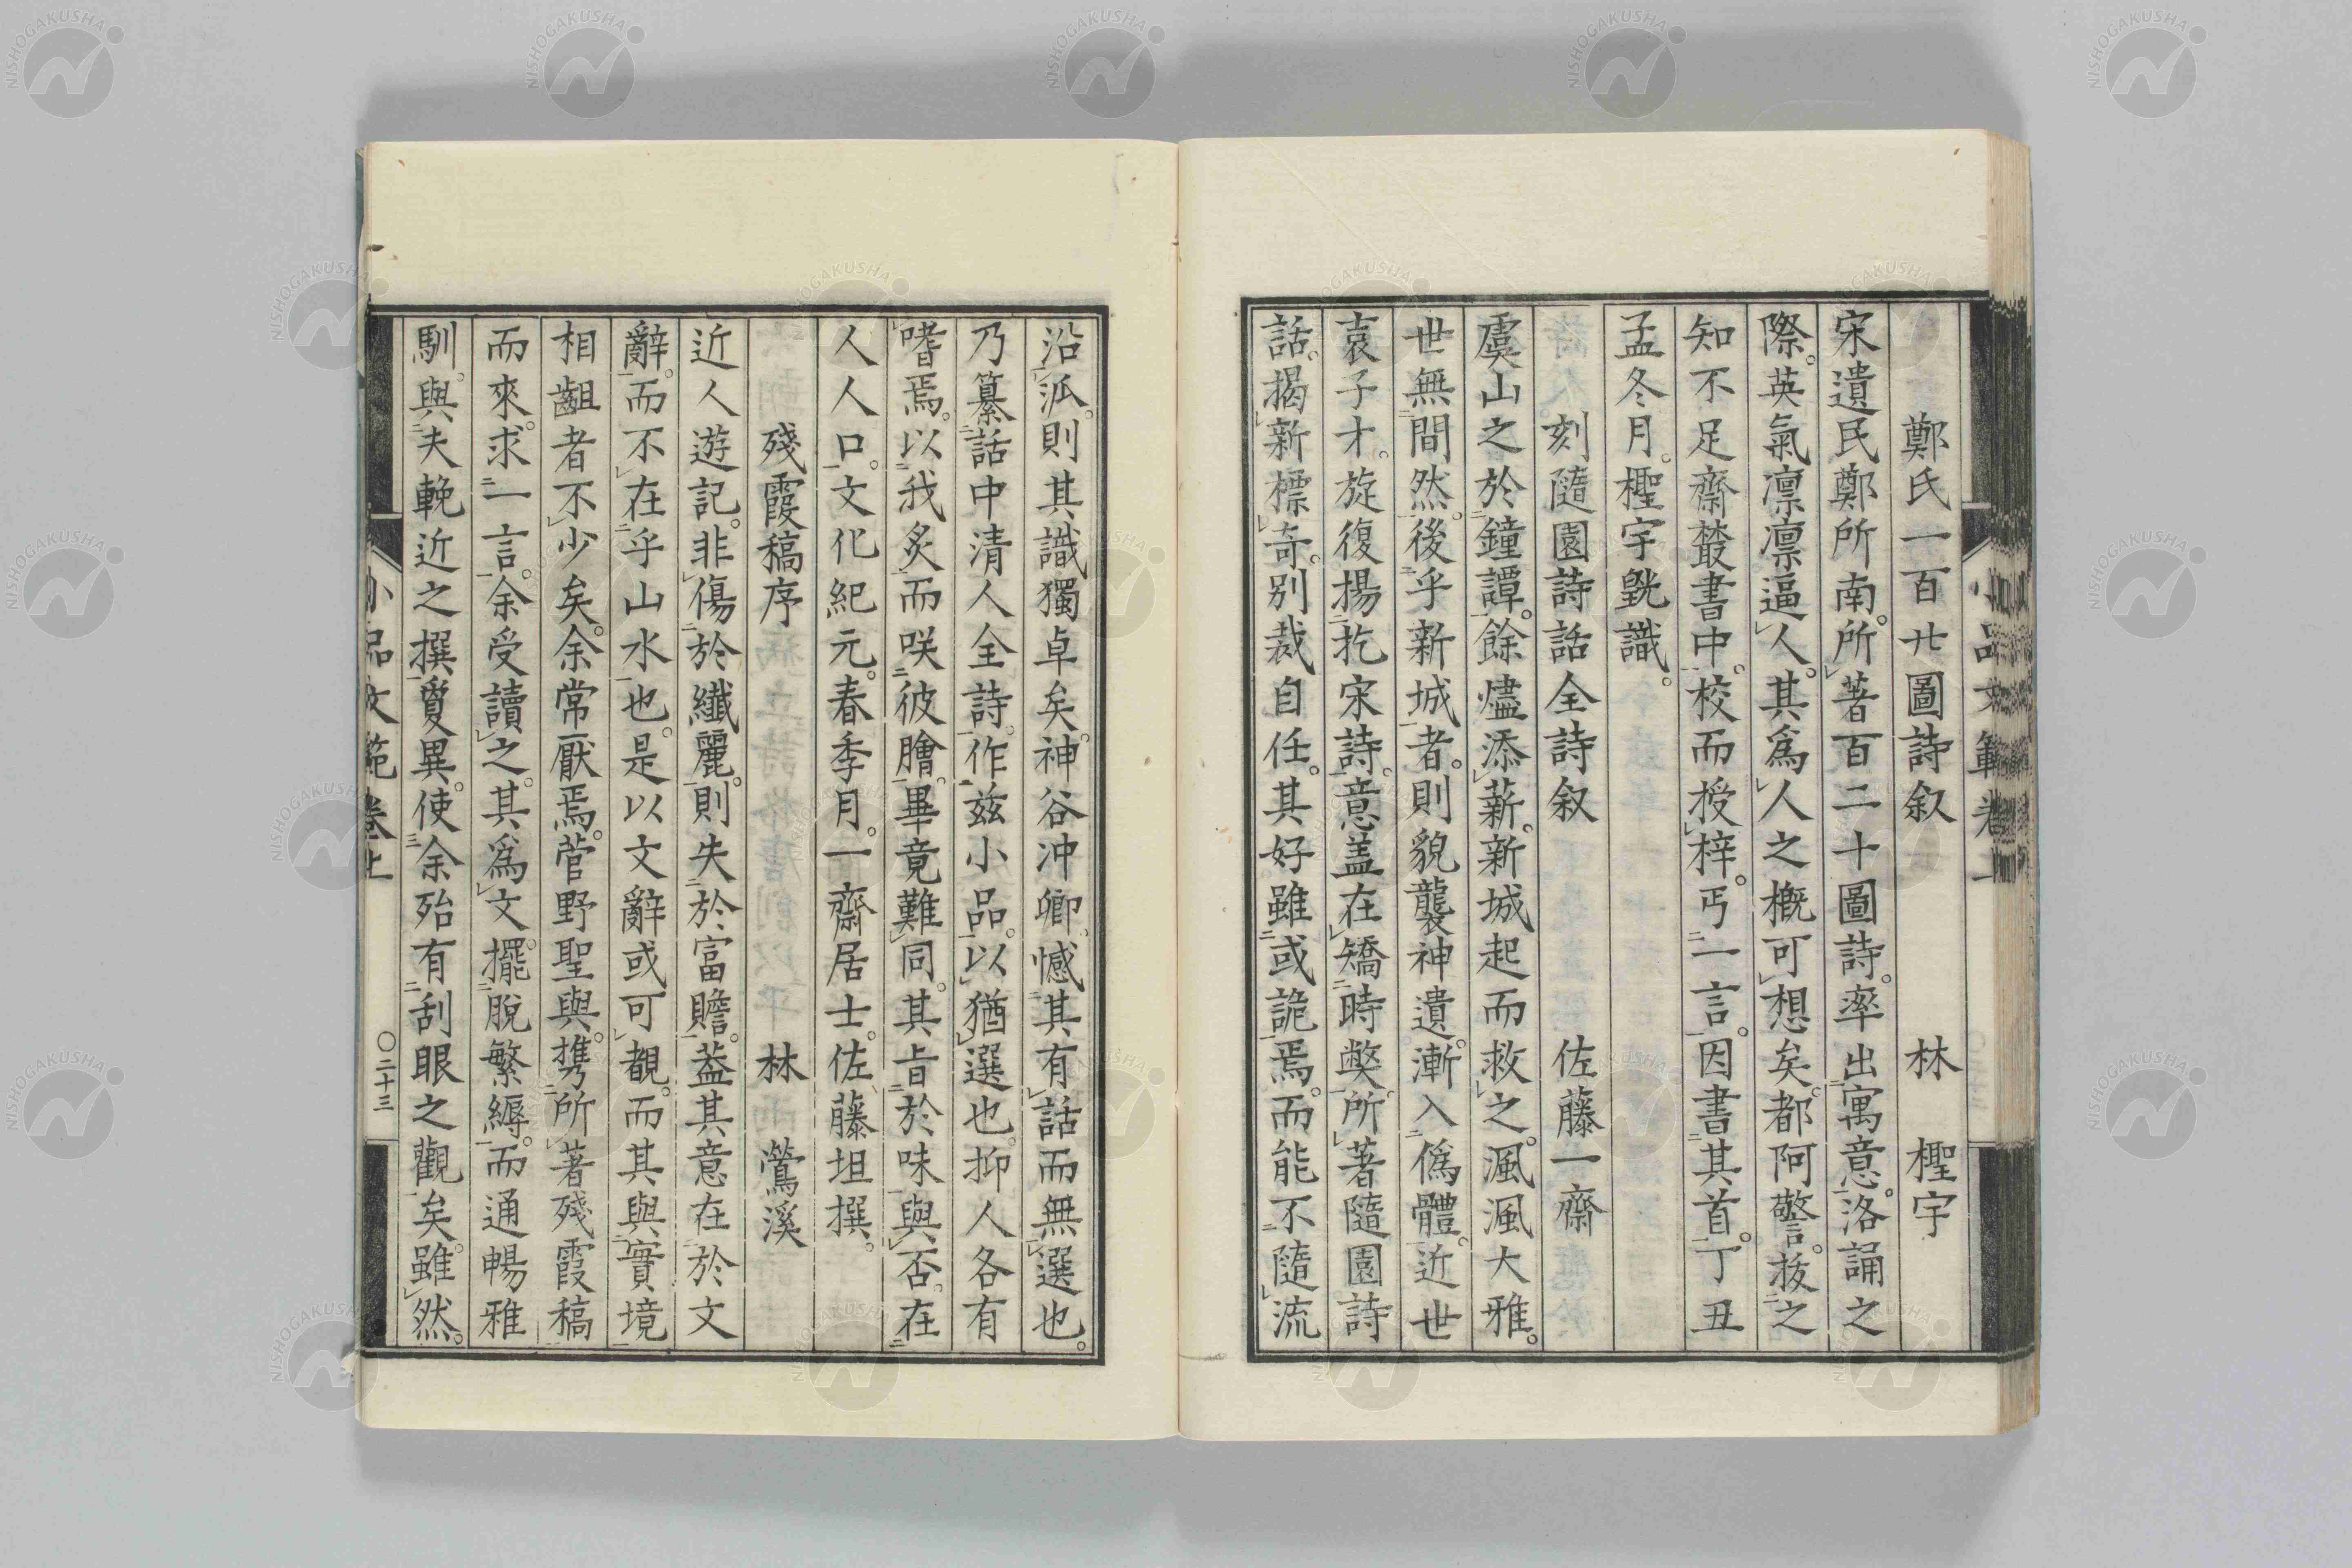 鄭氏一百廿圖詩叙　林　檉宇
宋遺民鄭所南。所著百二十圖詩。率出寓意。洛誦之
際。英氣凛凛逼人。其爲人之概可想矣。都阿警。抜之
知不足齋叢書中。校而授梓。丐一言。因書其首。丁丑
孟冬月。檉宇皝識。
刻隨園詩話全詩叙　佐藤一齋
虞山之於鐘譚。餘燼添薪。新城起而救之。渢渢大雅。
世無間然。後乎新城者。則貌襲神遺。漸入僞體。近世
袁子才。旋復揚扢宋詩。意盖在矯時獘。所著隨園詩
話。揭新標奇。別裁自任。其好雖或詭焉。而能不隨流
沿泒。則其識獨卓矣。神谷冲卿。憾其有話而無選也。
乃纂話中清人全詩。作茲小品。以猶選也。抑人各有
嗜焉。以我炙而咲彼膾。畢竟難同。其旨於味與否。在
人人口。文化紀元。春季月。一齋居士。佐藤坦撰。
殘霞稿序　林　鶯溪
近人遊記。非傷於纖麗。則失於富贍。葢其意在於文
辭。而不在乎山水也。是以文辭或可覩。而其與實境
相齟者不少矣。余常厭焉。菅野聖與。携所著殘霞稿
而來。求一言。余受讀之。其爲文。擺脫繁縟。而通暢雅
馴。與夫輓近之撰夐異。使余殆有刮眼之觀矣。雖然。
小品文範卷上
〇二十三